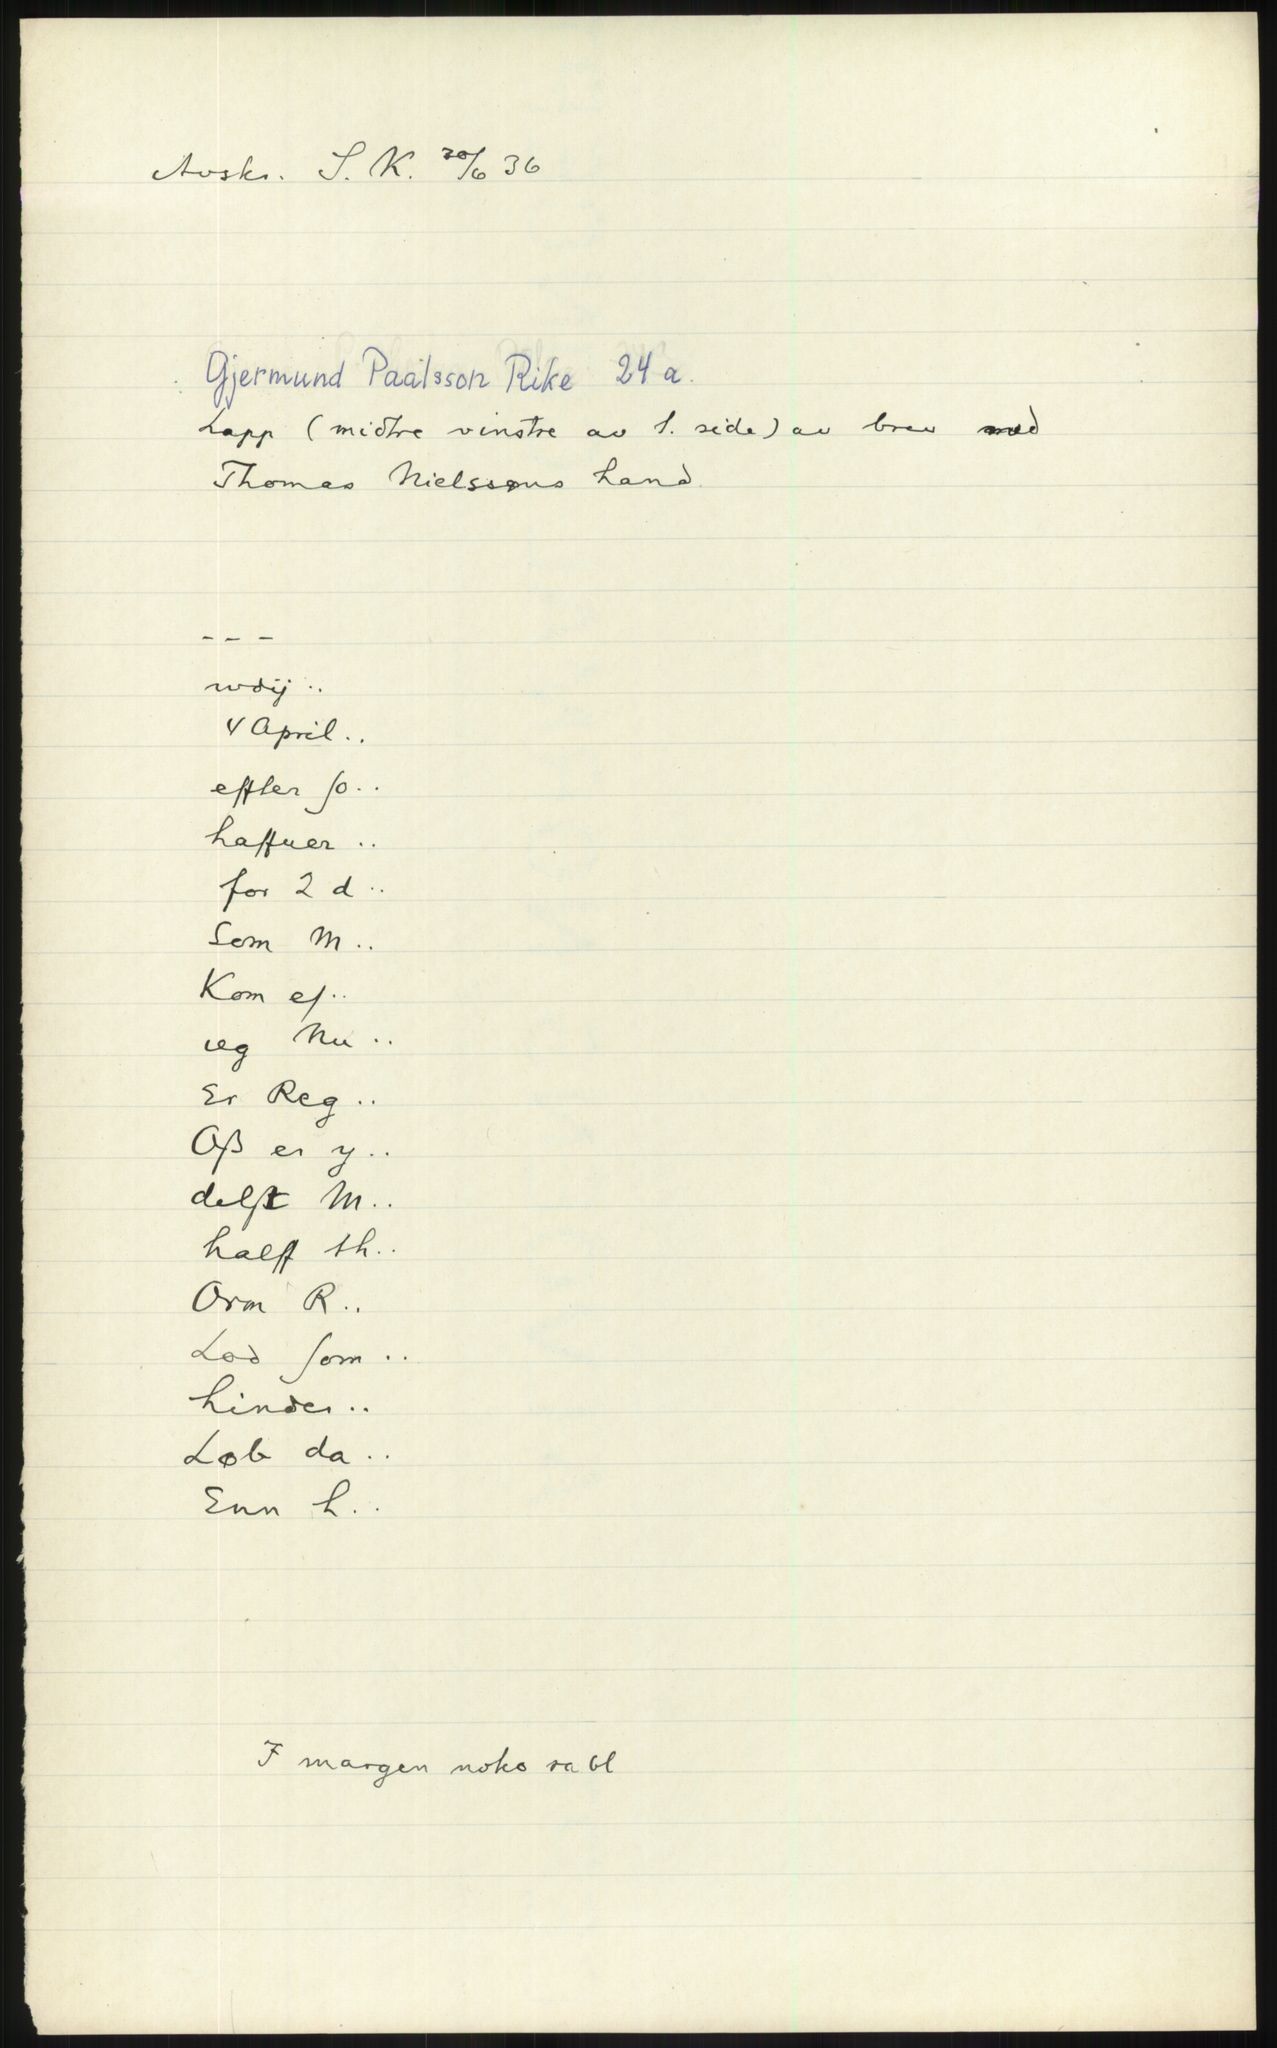 Avskr. S. K. 20/6 36
Gjermund Paalsson Rike 24 a.
Lapp (midtre vinstre av 1. side) av brev med
Thomas Nielssøns hand.
- - -
wdij ..
4 April ..
effter so ..
haffuer ..
for 2 d ..
Som M ..
Kom ef ..
ieg Nu ..
Er Reg ..
Oß er y ..
M ..
halff th ..
Orm R ..
Lod som ..
hinder ..
Løb da ..
Enn h ..
I margen noko rabl